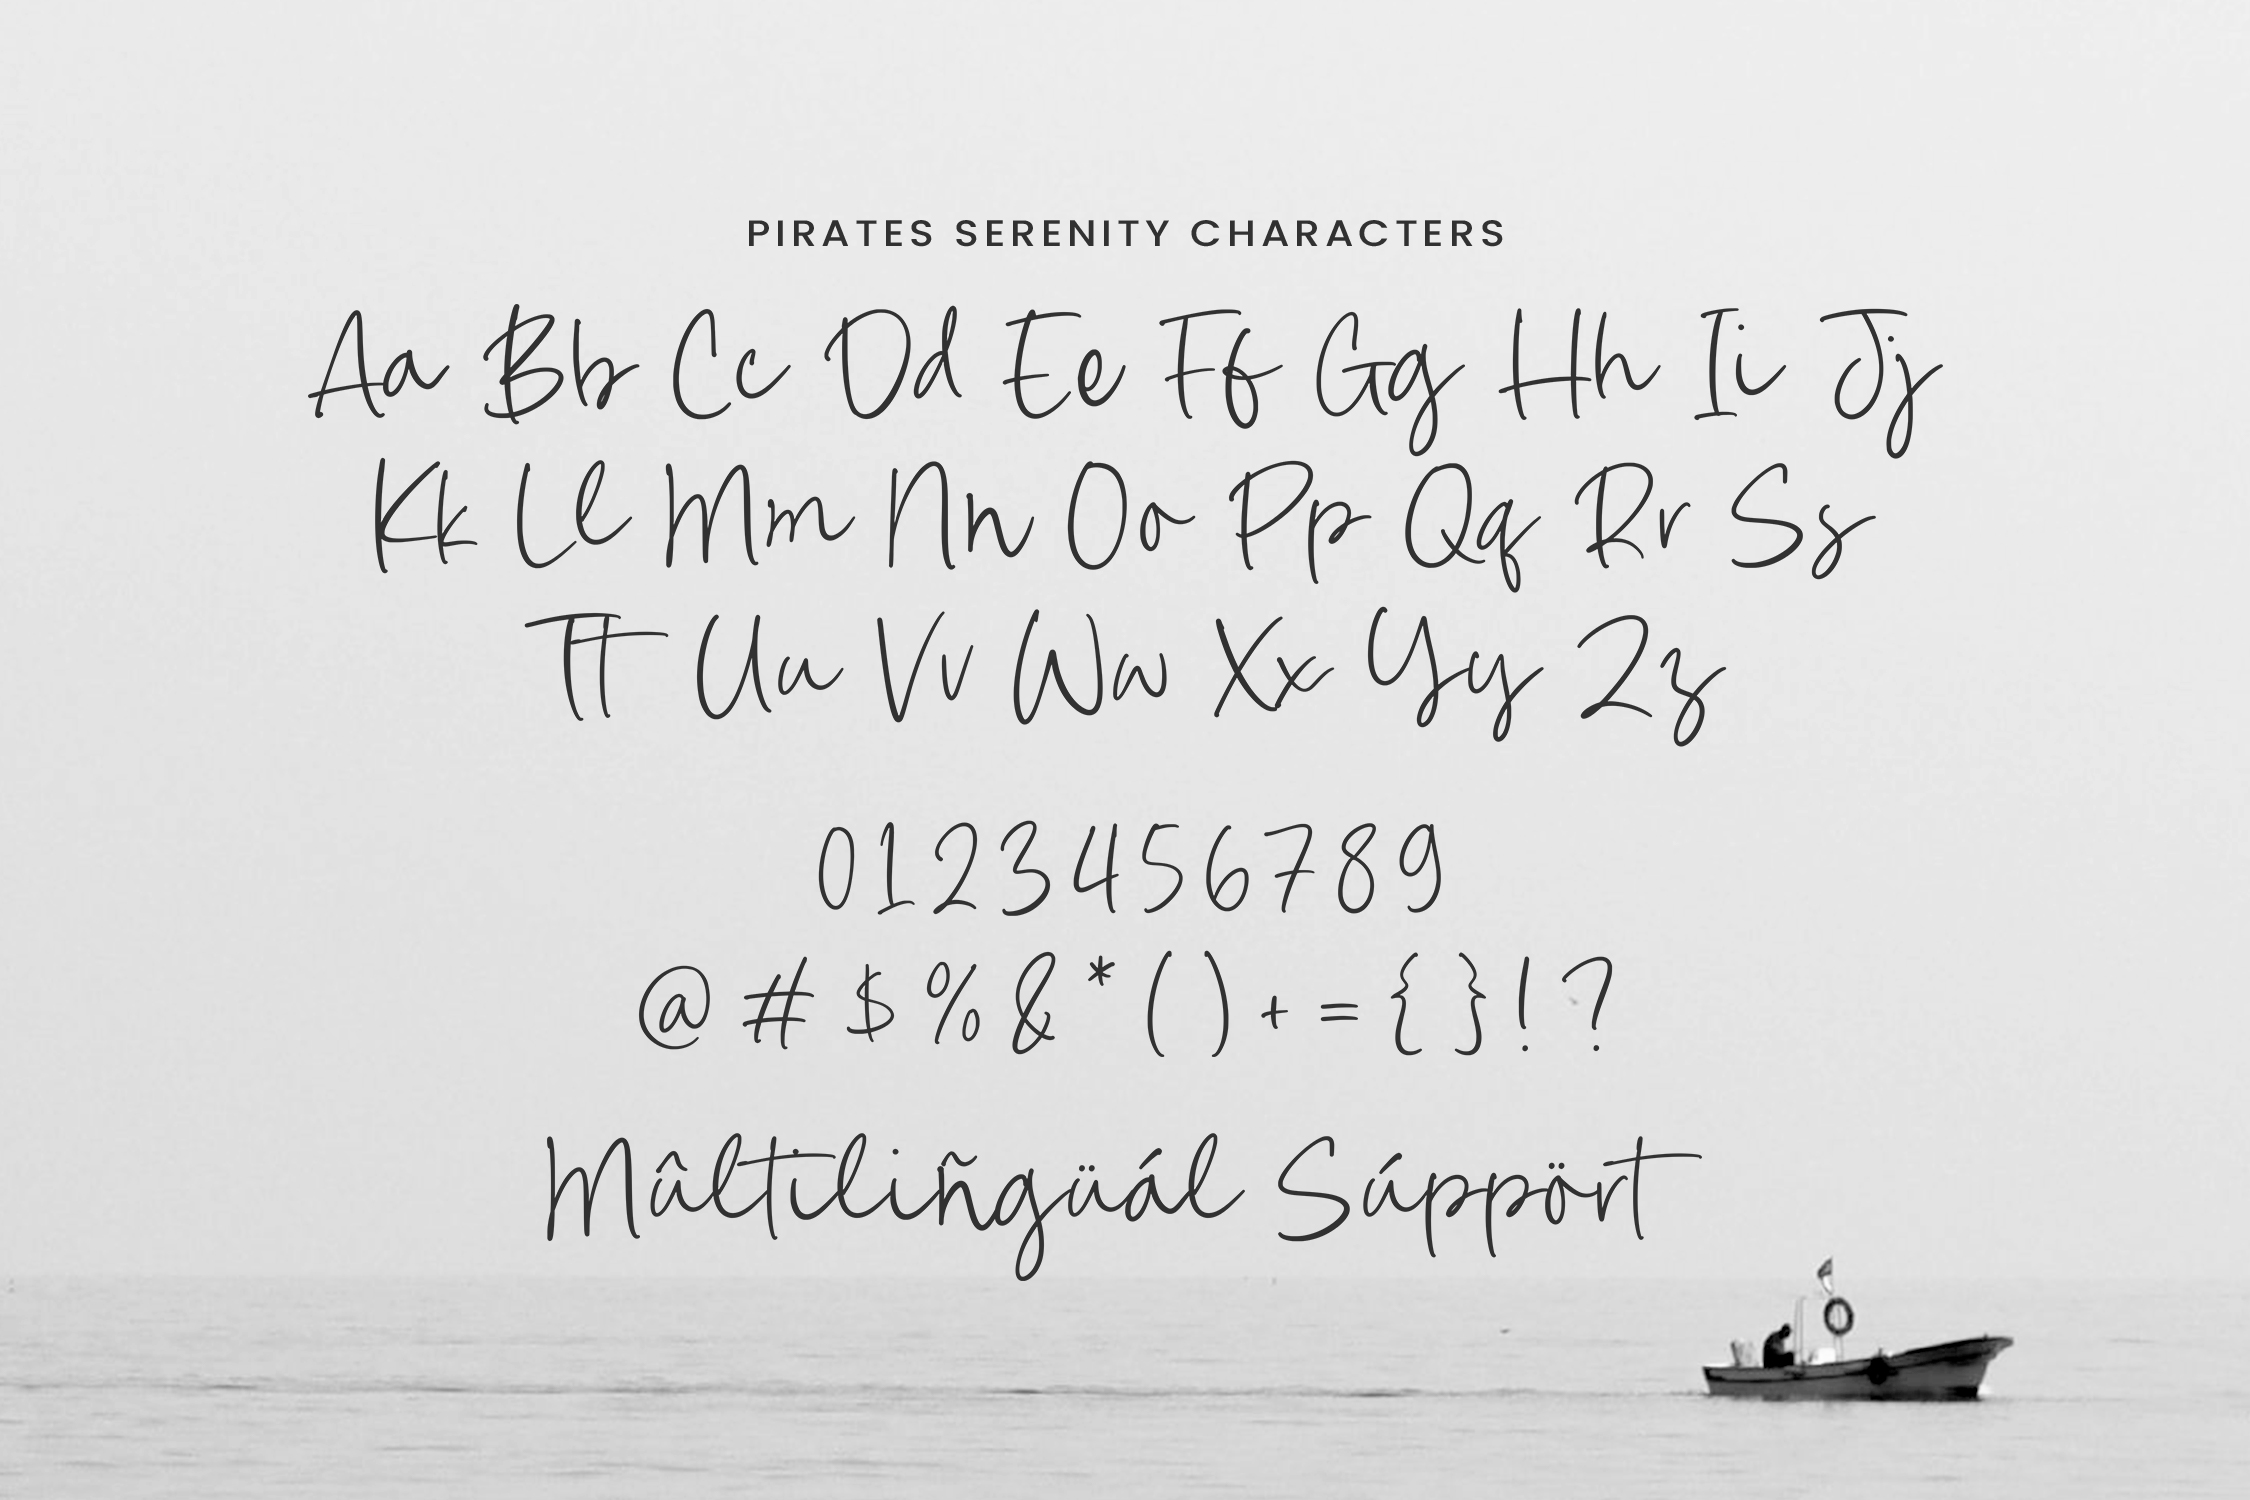 PIRATES SERENITY CHARACTERS
Aa Bb Cc Dd Ee Ff Gg Hh Ii Jj
Kk Ll Mm Nn Oo Pp Qq Rr Ss
Tt Uu Vv Ww Xx Yy Zz
0 1 2 3 4 5 6 7 8 9
@ # $ % & * ( ) + = { } ! ?
Mâltiliñgüál Súppört